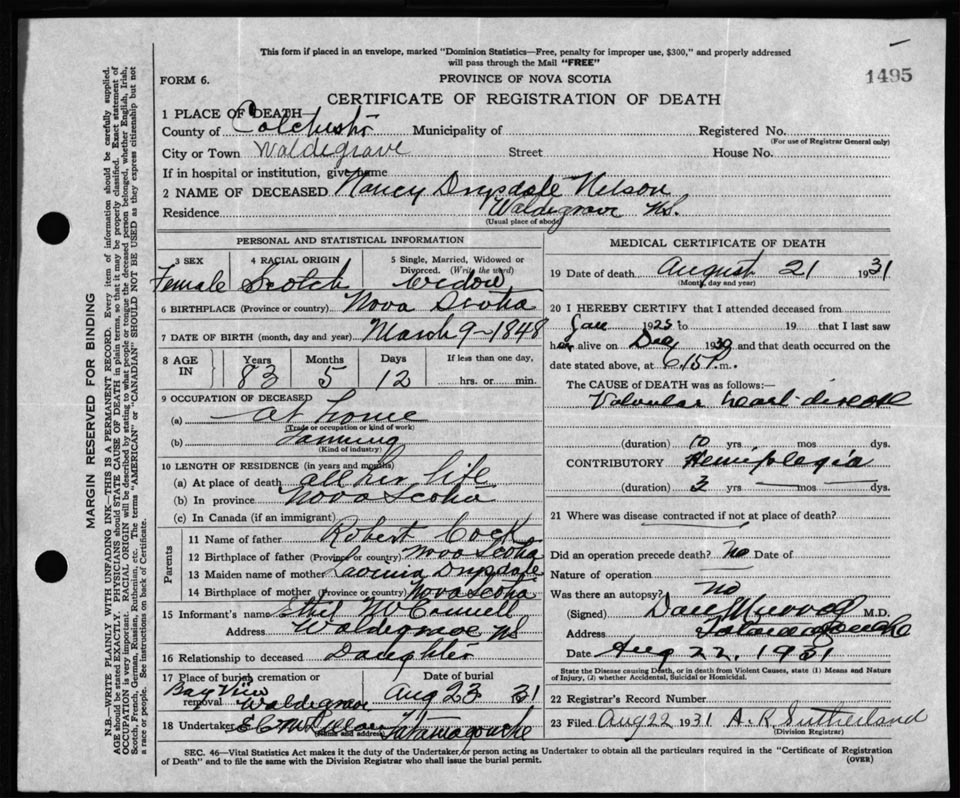 This form if placed in an envelope, marked "Dominion Statistics—Free, penalty for improper use, $300," and properly addressed
will pass through the Mail "FREE"
FORM 6.
PROVINCE OF NOVA SCOTIA
1495
CERTIFICATE OF REGISTRATION OF DEATH
1 PLACE OF DEATH—
County of Colchester Municipality of Registered No.
(For use of Registrar General only)
City or Town Waldegrave Street House No.
If in hospital or institution, give name
2 NAME OF DECEASED Nancy Drysdale Nelson
Residence Waldegrave N.S.
(Usual place of abode)
PERSONAL AND STATISTICAL INFORMATION
3 SEX 4 RACIAL ORIGIN 5 Single, Married, Widowed or
Divorced. (Write the word)
Female Scotch Widow
6 BIRTHPLACE (Province or country) Nova Scotia
7 DATE OF BIRTH (month, day and year) March 9-1848
8 AGE IN Years Months Days If less than one day,
83 5 12 hrs. or min.
9 OCCUPATION OF DECEASED
(a) at home
(Trade or occupation or kind of work)
(b) Farming
(Kind of industry)
10 LENGTH OF RESIDENCE (in years and months)
(a) At place of death all her life
(b) In province Nova Scotia
(c) In Canada (if an immigrant)
Parents
11 Name of father Robert Cock
12 Birthplace of father (Province or country) Nova Scotia
13 Maiden name of mother Lavinia Drysdale
14 Birthplace of mother (Province or country) Nova Scotia
15 Informant's name Ethel McConnell
Address Waldegrave NS
16 Relationship to deceased Daughter
17 Place of burial, cremation or Date of burial
removal Bay View Waldegrave Aug 23 31
18 Undertaker Tatamagouche
(Name and address)
MEDICAL CERTIFICATE OF DEATH
19 Date of death August 21 1931
(Month, day and year)
20 I HEREBY CERTIFY that I attended deceased from
Jan 1925 to 19 that I last saw
her alive on Dec 1930 and that death occurred on the
date stated above, at 6.15 P.m.
The CAUSE OF DEATH was as follows:—
Valvular heart disease
(duration) 10 yrs. mos dys.
CONTRIBUTORY Hemiplegia
(duration) 3 yrs mos dys.
21 Where was disease contracted if not at place of death?
Did an operation precede death? No Date of
Nature of operation
Was there an autopsy? No
(Signed) Dan Murray M.D.
Address Tatamagouche
Date Aug 22, 1931
State the Disease causing Death, or in death from Violent Causes, state (1) Means and Nature
of Injury, (2) whether Accidental, Suicidal or Homicidal.
22 Registrar's Record Number
23 Filed Aug 22 1931 A. R. Sutherland
(Division Registrar)
SEC. 46—Vital Statistics Act makes it the duty of the Undertaker, or person acting as Undertaker to obtain all the particulars required in the "Certificate of Registration
of Death" and to file the same with the Division Registrar who shall issue the burial permit.
(OVER)
MARGIN RESERVED FOR BINDING
N.B.—WRITE PLAINLY WITH UNFADING INK—THIS IS A PERMANENT RECORD. Every item of information should be carefully supplied.
AGE should be stated EXACTLY. PHYSICIANS should STATE CAUSE OF DEATH in plain terms, so that it may be properly classified. Exact statement of
OCCUPATION is very important. RACIAL ORIGIN will be described by stating to what people or tongue the deceased person belonged, whether English, Irish,
Scotch, French, German, Russian, Ruthenian, etc. The terms "AMERICAN" or "CANADIAN" SHOULD NOT BE USED as they express citizenship but not
a race or people. See instructions on back of Certificate.